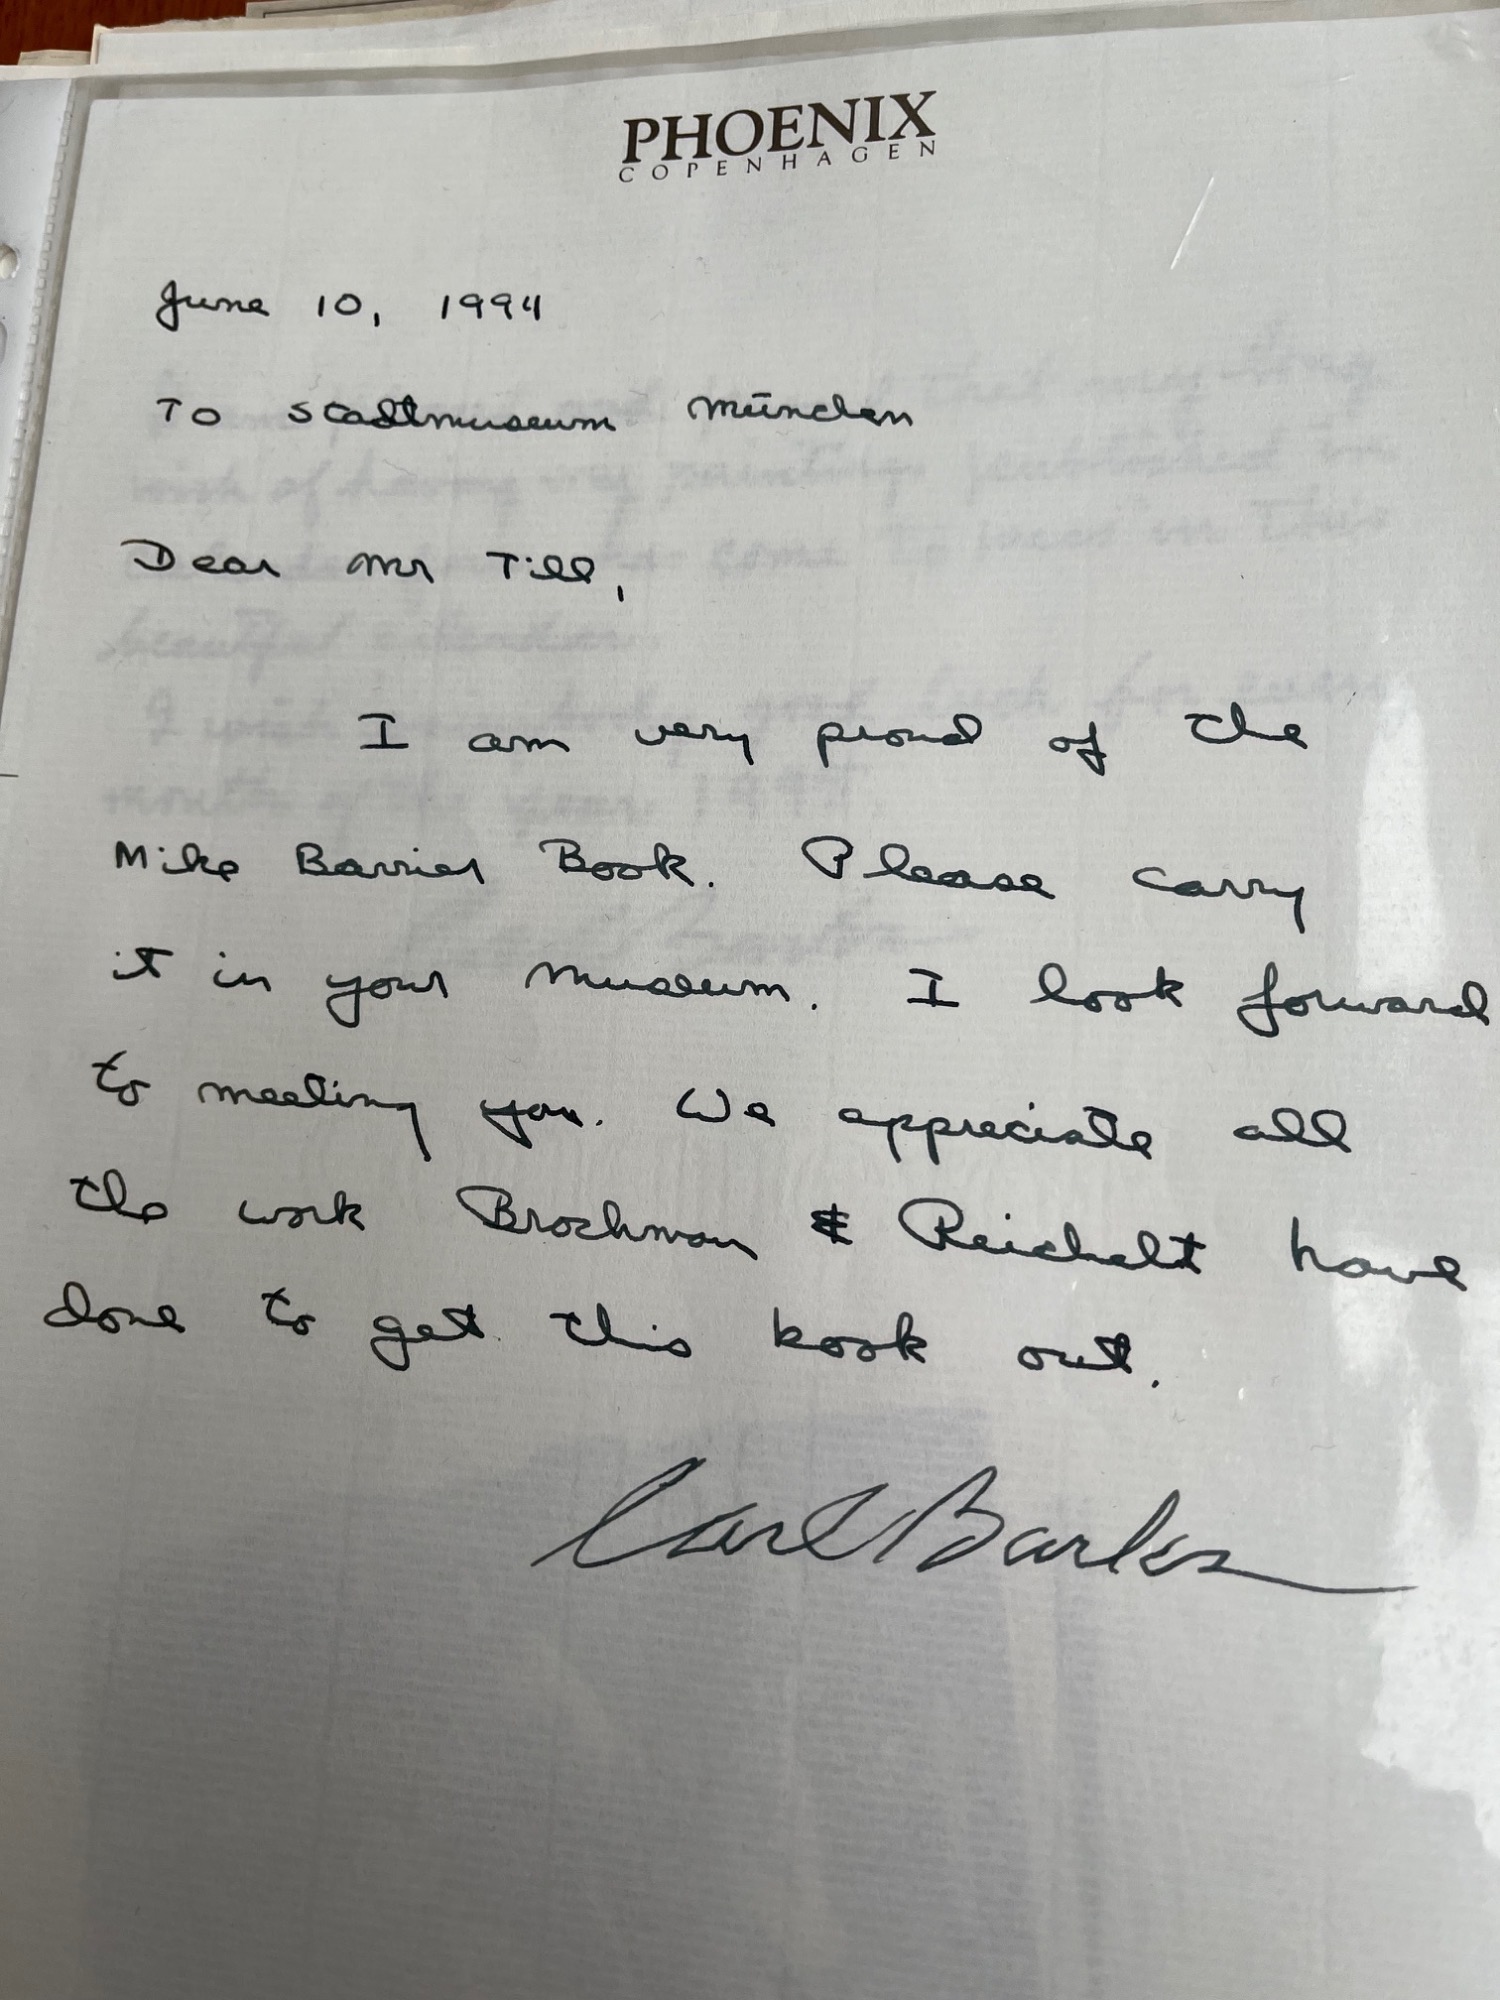 PHOENIX
COPENHAGEN
June 10, 1994
To Stadtmuseum München
Dear Mr Till,
I am very proud of the
Mike Barrier Book. Please carry
it in your museum. I look forward
to meeting you. We appreciate all
the work Brochman & Reichelt have
done to get this book out.
Carl Barks